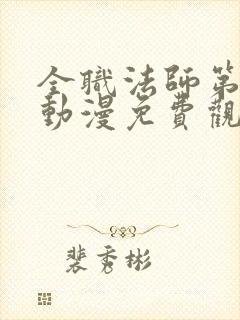 全職法師第
動漫免費觀
裴秀彬